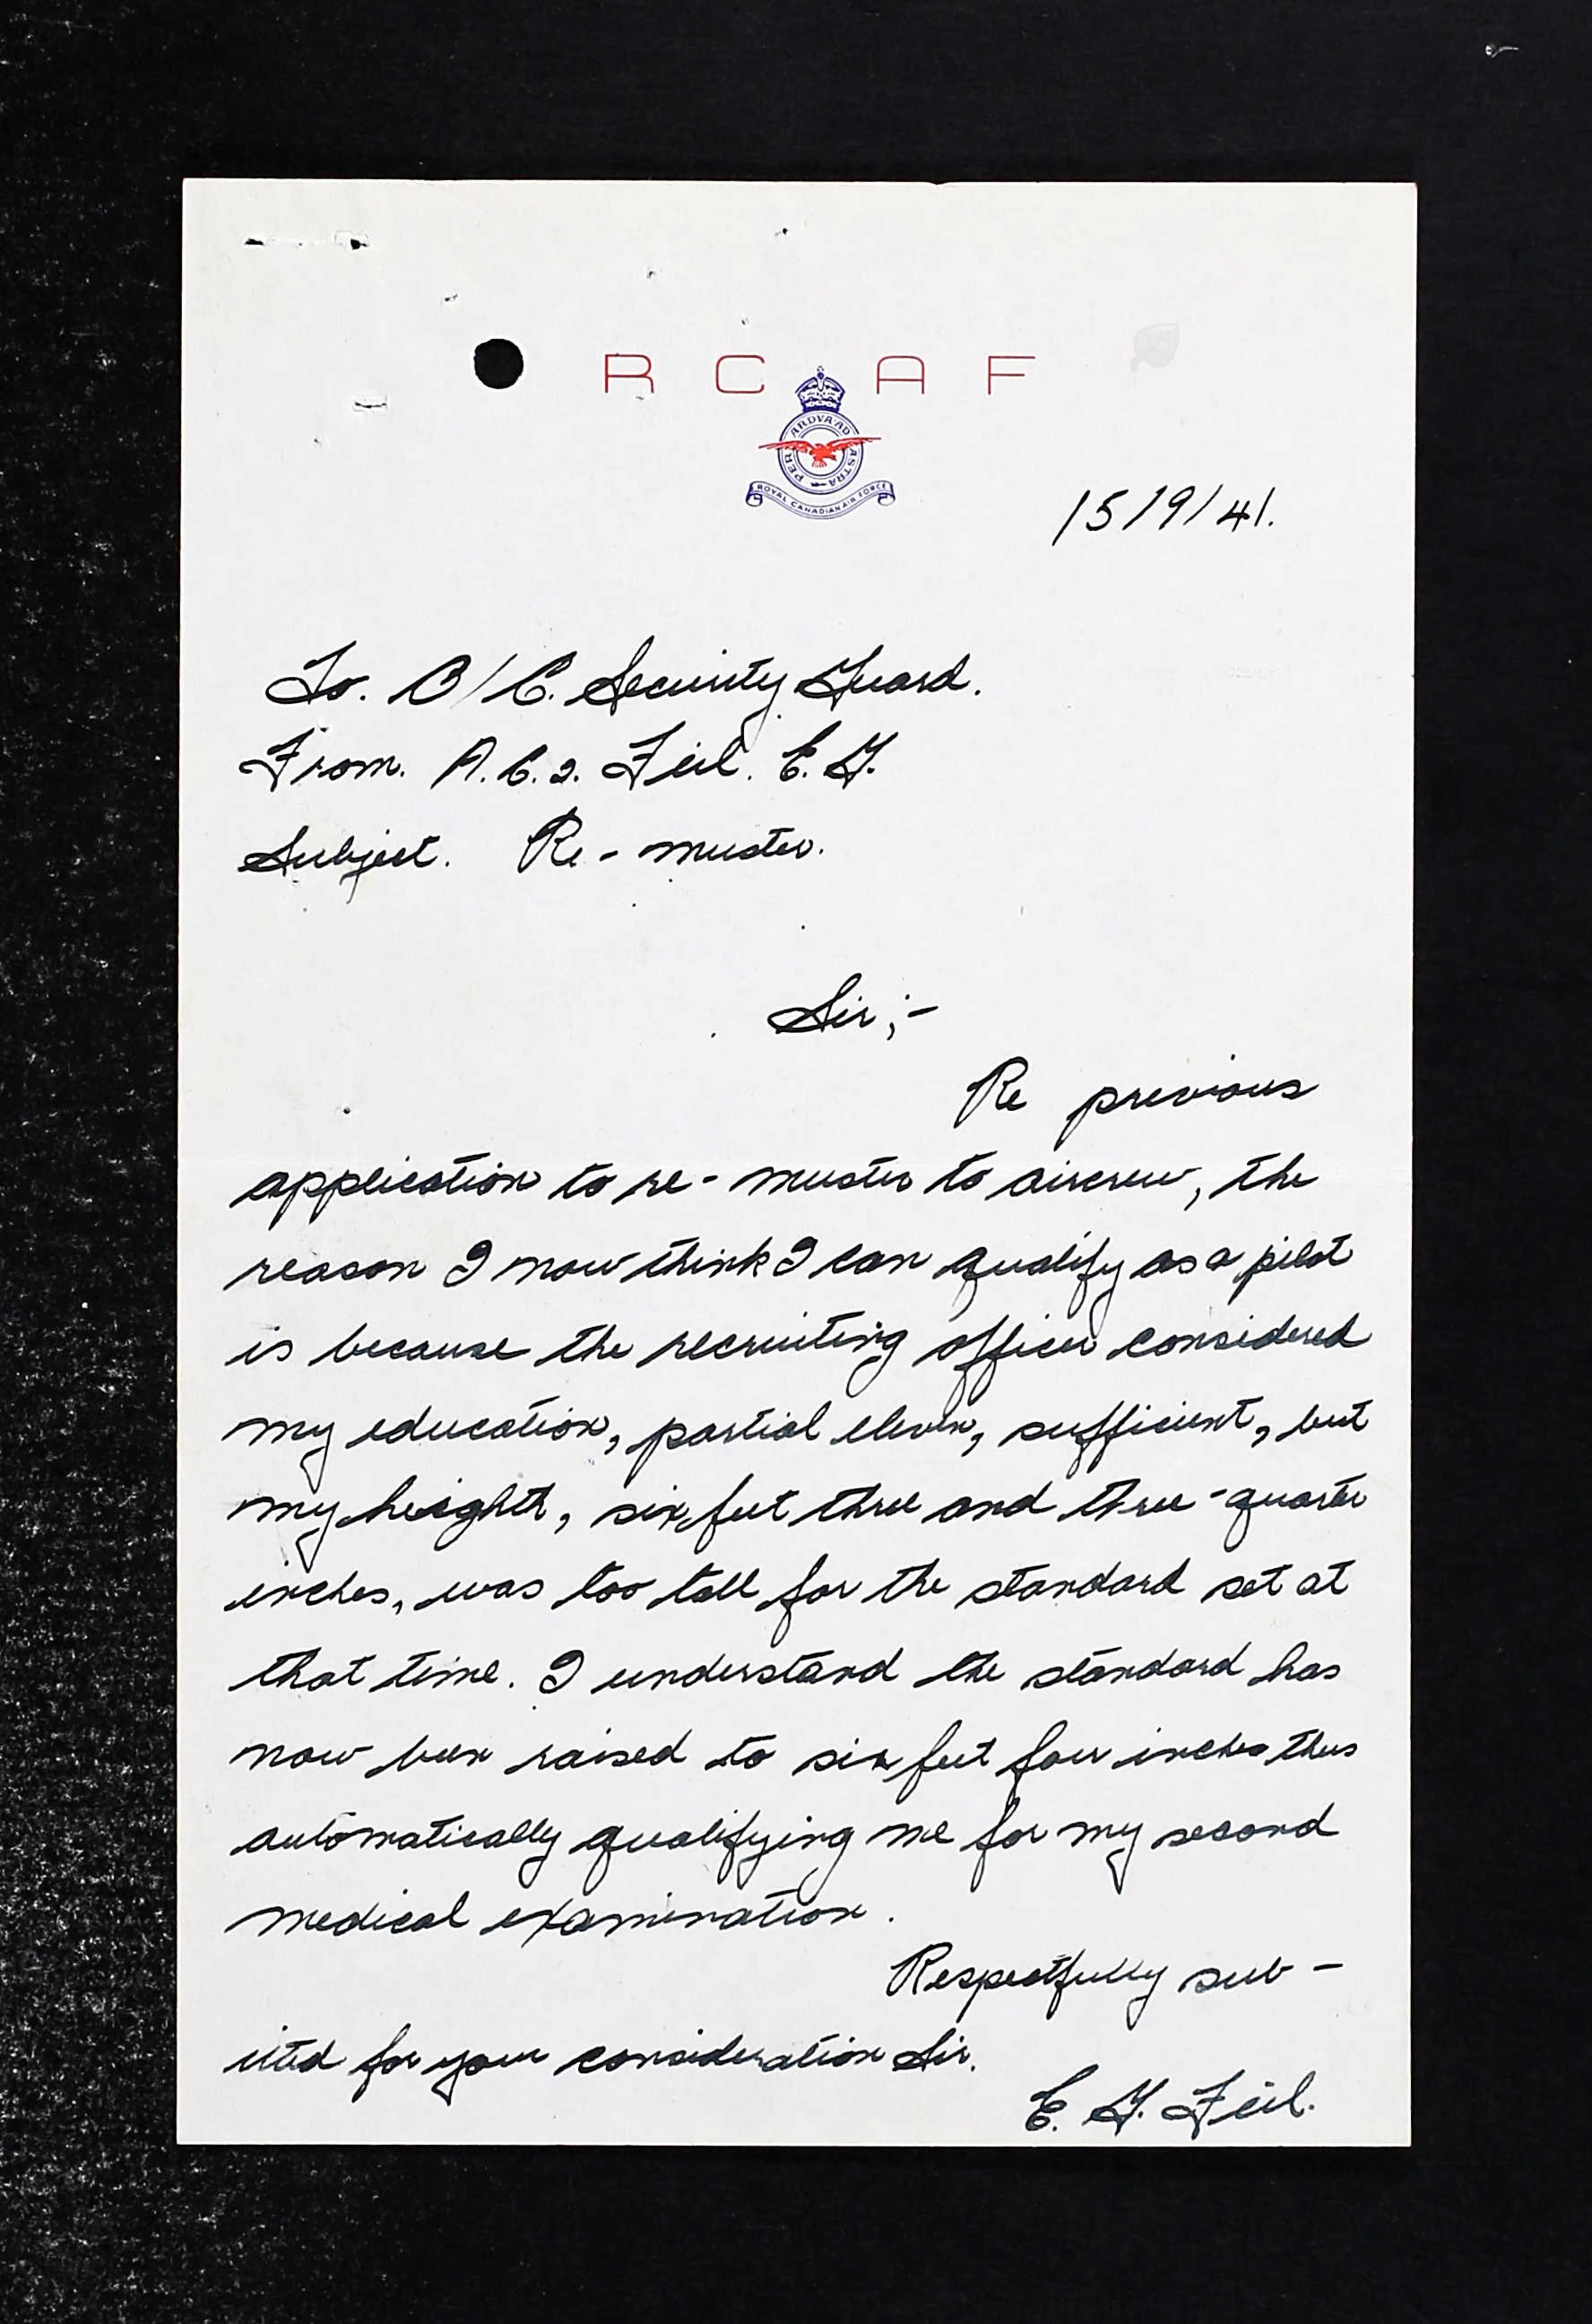 R C A F
PER ARDVA AD ASTRA
ROYAL CANADIAN AIR FORCE
15/9/41.
To. O/C. Security Guard.
From. A.C.2. Feil. E. G.
Subject. Re-muster.
Sir;-
Re previous
application to re-muster to aircrew, the
reason I now think I can qualify as a pilot
is because the recruiting officer considered
my education, partial eleven, sufficient, but
my height, six feet three and three-quarter
inches, was too tall for the standard set at
that time. I understand the standard has
now been raised to six feet four inches thus
automatically qualifying me for my second
medical examination.
Respectfully sub-
ited for your consideration Sir.
E. G. Feil.